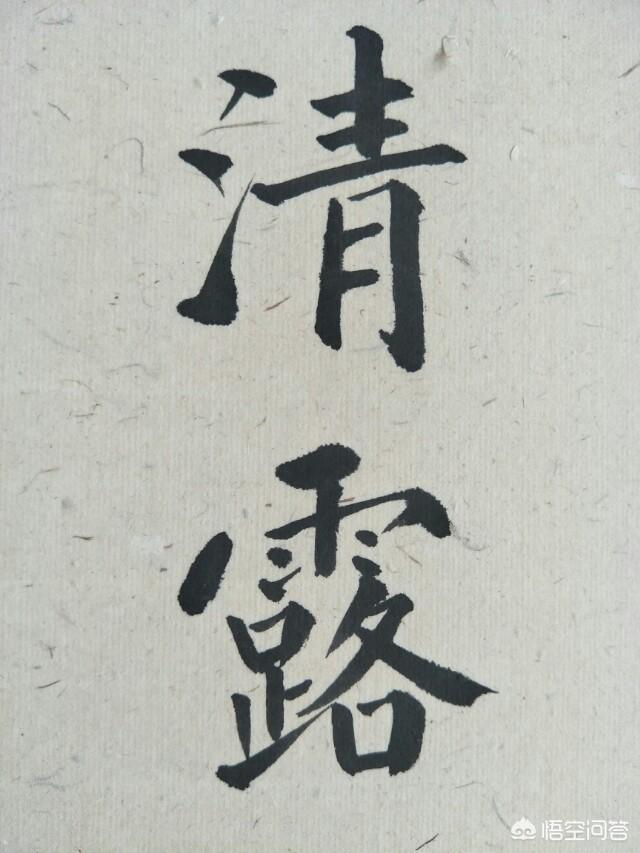 清露
悟空问答